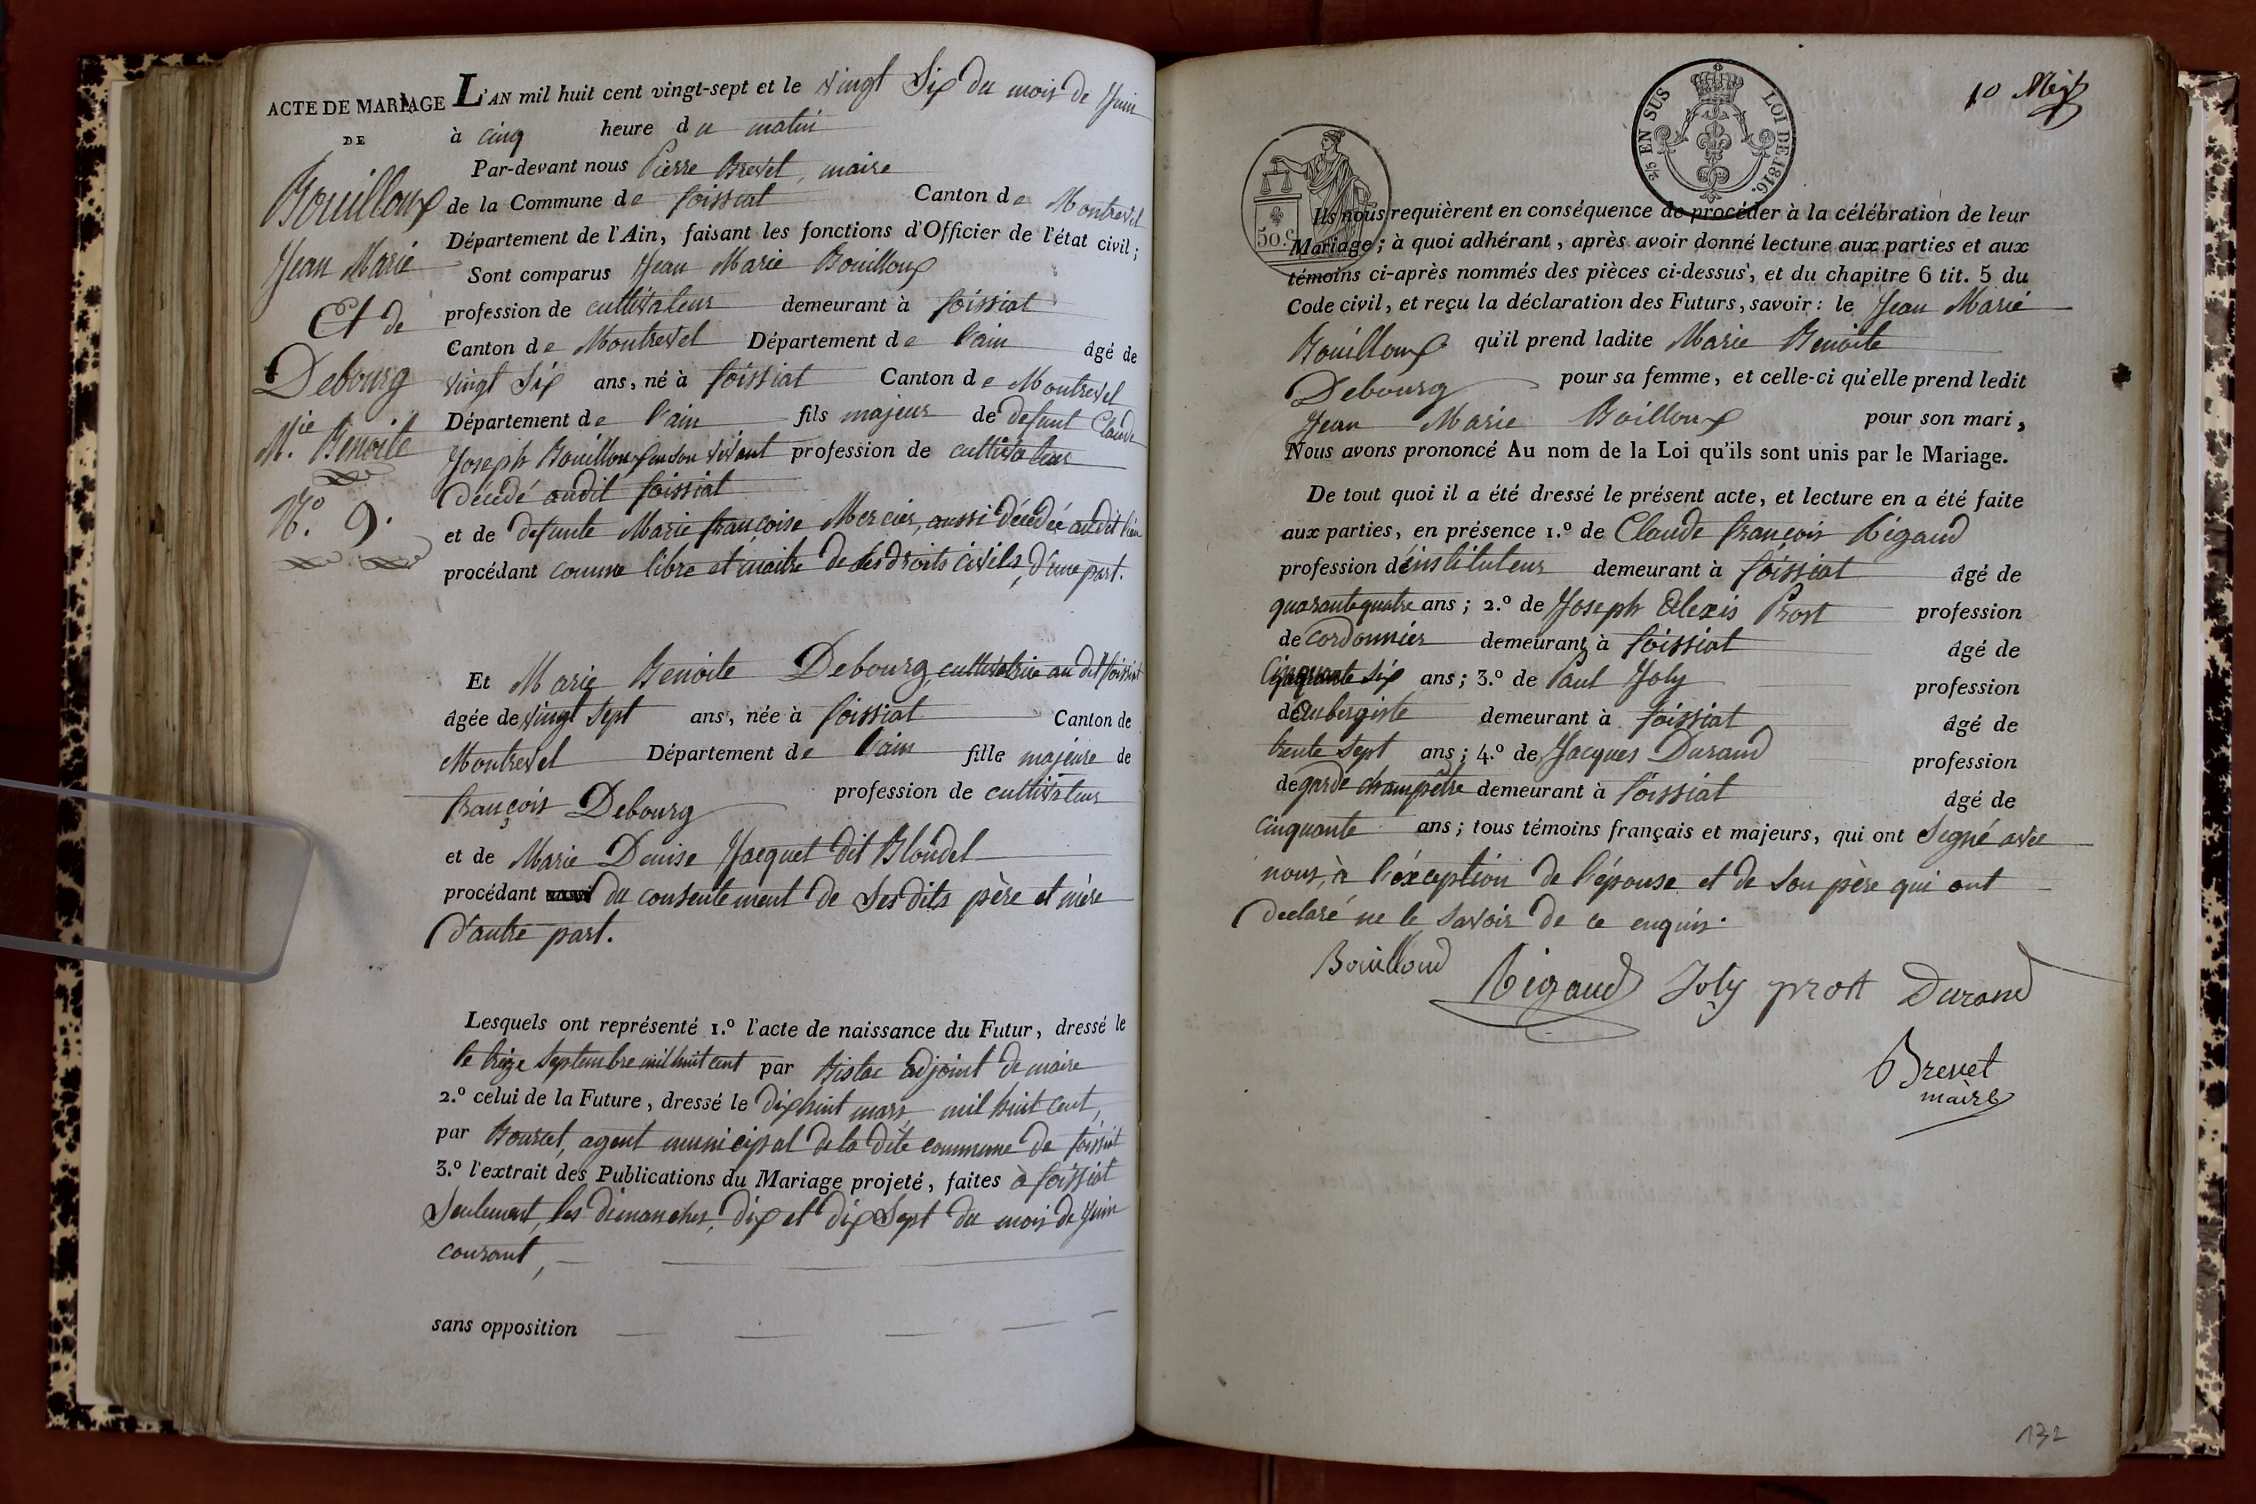 ACTE DE MARIAGE
DE
Bouilloux
Jean Marie
Et de
Debourg
M.ie Benoite
N.o 9.
L'AN mil huit cent vingt-sept et le vingt Six du mois de Juin
à cinq heure du matin
Par-devant nous Pierre Brevet, maire
de la Commune de foissiat Canton de Montrevel
Département de l'Ain, faisant les fonctions d'Officier de l'état civil;
Sont comparus Jean Marie Bouilloux
profession de cultivateur demeurant à foissiat
Canton de Montrevel Département de l'ain âgé de
vingt Six ans, né à foissiat Canton de Montrevel
Département de l'ain fils majeur de defunt Claude
Joseph Bouilloux en son vivant profession de cultivateur
décédé audit foissiat
et de defunte Marie françoise Mercier, aussi décédée audit lieu
procédant comme libre et maitre de ses droits civils, d'une part.
Et Marie Benoite Debourg, cultivatrice au dit foissiat
âgée de vingt Sept ans, née à foissiat Canton de
Montrevel Département de l'ain fille majeure de
françois Debourg profession de cultivateur
et de Marie Denise Jacquet dit Blondel
procédant du consentement de Ses dits père et mère
d'autre part.
Lesquels ont représenté 1.o l'acte de naissance du Futur, dressé le
le treize Septembre mil huit cent par Bistac adjoint de maire
2.o celui de la Future, dressé le dix huit mars mil huit cent,
par Bourcet, agent municipal de la dite commune de foissiat
3.o l'extrait des Publications du Mariage projeté, faites à foissiat
Seulement, les dimanches, dix et dix Sept du mois de Juin
courant,
sans opposition
10
2/5 EN SUS LOI DE 1816.
50.c
Ils nous requièrent en conséquence de procéder à la célébration de leur
Mariage; à quoi adhérant, après avoir donné lecture aux parties et aux
témoins ci-après nommés des pièces ci-dessus, et du chapitre 6 tit. 5 du
Code civil, et reçu la déclaration des Futurs, savoir: le Jean Marie
Bouilloux qu'il prend ladite Marie Benoite
Debourg pour sa femme, et celle-ci qu'elle prend ledit
Jean Marie Boilloux pour son mari,
Nous avons prononcé Au nom de la Loi qu'ils sont unis par le Mariage.
De tout quoi il a été dressé le présent acte, et lecture en a été faite
aux parties, en présence 1.o de Claude françois Rigaud
profession d'instituteur demeurant à foissiat âgé de
quarante quatre ans; 2.o de Joseph Alexis Prost profession
de cordonnier demeurant à foissiat âgé de
Cinquante Six ans; 3.o de Paul Joly profession
d'aubergiste demeurant à foissiat âgé de
trente Sept ans; 4.o de Jacques Durand profession
de garde champêtre demeurant à foissiat âgé de
cinquante ans; tous témoins français et majeurs, qui ont Signé avec
nous, à l'éxception de l'épouse et de Son père qui ont
declaré ne le savoir de ce enquis.
Bouilloud Rigaud Joly prost Durand
Brevet
maire
132